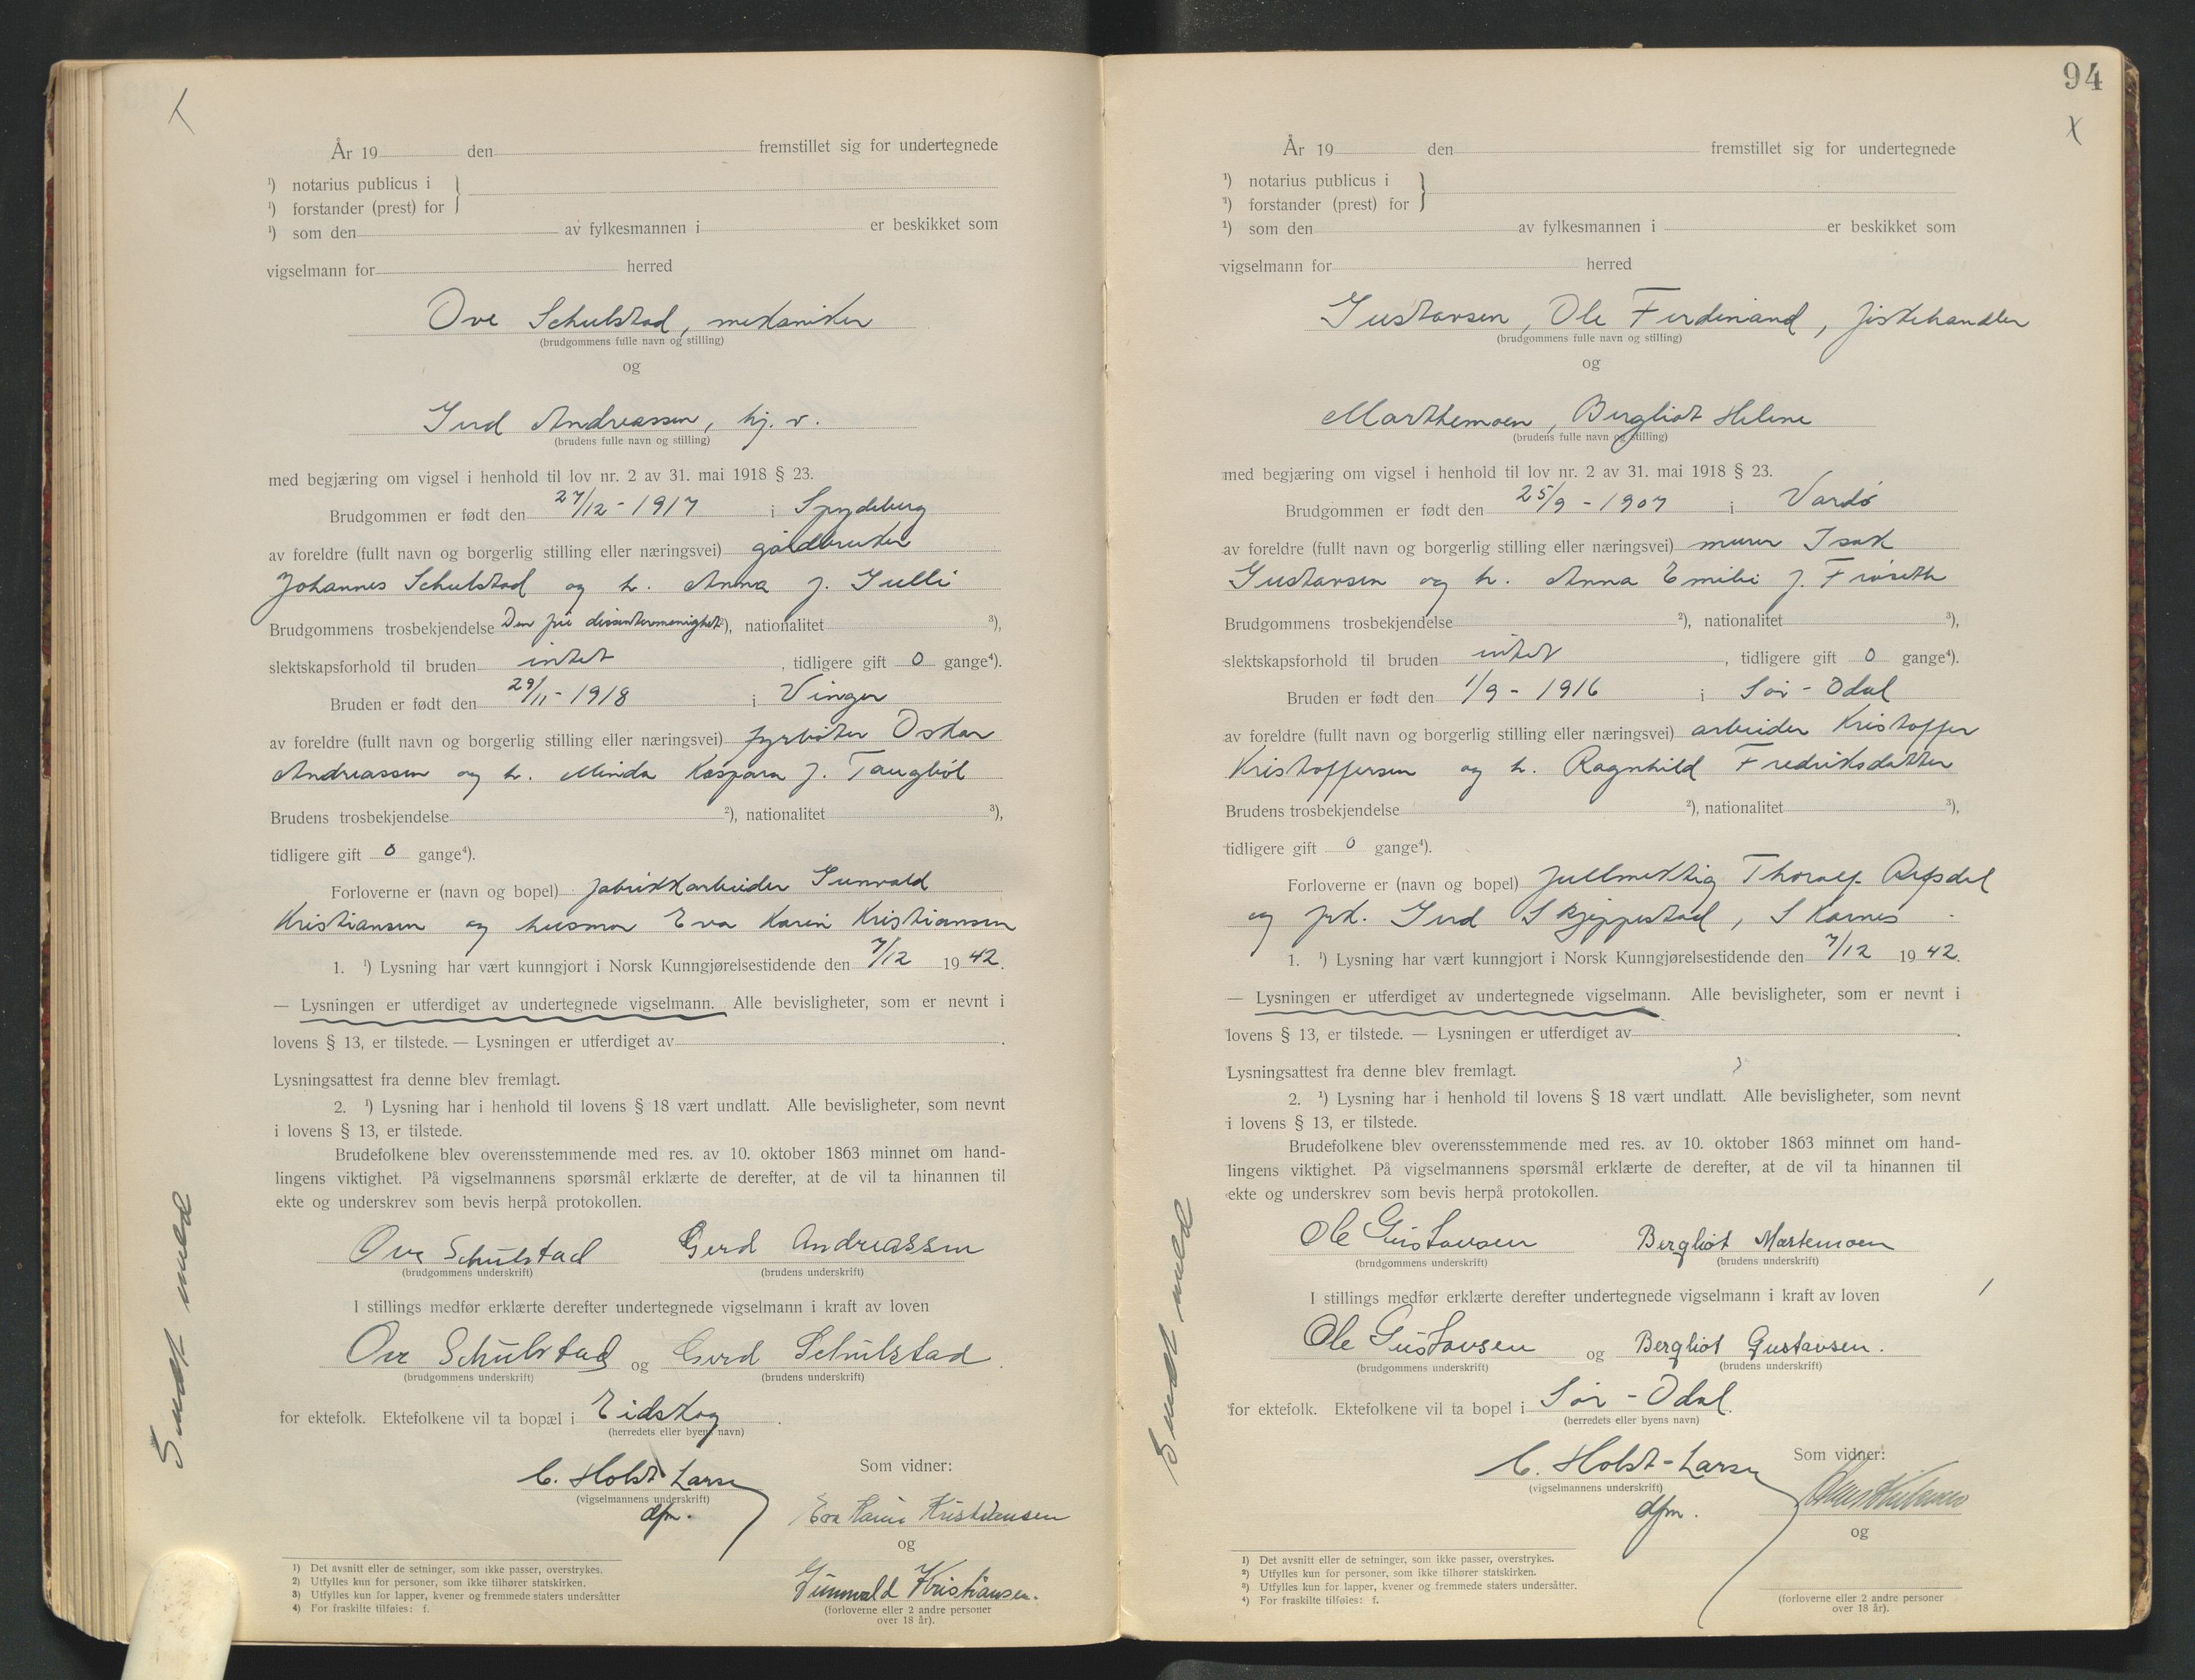 År 19 den fremstillet sig for undertegnede
¹) notarius publicus i
¹) forstander (prest) for
¹) som den av fylkesmannen i er beskikket som
vigselmann for herred
Ove Schulstad, mekaniker
(brudgommens fulle navn og stilling)
og
Gerd Andreassen, hj. v.
(brudens fulle navn og stilling)
med begjæring om vigsel i henhold til lov nr. 2 av 31. mai 1918 § 23.
Brudgommen er født den 27/12 - 1917 i Spydeberg
av foreldre (fullt navn og borgerlig stilling eller næringsvei) gårdbruker
Johannes Schulstad og h. Anna f. Gulli
Brudgommens trosbekjendelse Den fri dissentermenighet ²), nationalitet ³),
slektskapsforhold til bruden intet, tidligere gift 0 gange⁴).
Bruden er født den 29/11 - 1918 i Vinger
av foreldre (fullt navn og borgerlig stilling eller næringsvei) fyrbøter Oskar
Andreassen og h. Minda Kaspara f. Taugbøl
Brudens trosbekjendelse ²), nationalitet ³),
tidligere gift 0 gange⁴).
Forloverne er (navn og bopel) fabrikkarbeider Gunvald
Kristiansen og husmor Eva Karin Kristiansen
1. ¹) Lysning har vært kunngjort i Norsk Kunngjørelsestidende den 7/12 1942.
— Lysningen er utferdiget av undertegnede vigselmann. Alle bevisligheter, som er nevnt i
lovens § 13, er tilstede. — Lysningen er utferdiget av .
Lysningsattest fra denne blev fremlagt.
2. ¹) Lysning har i henhold til lovens § 18 vært undlatt. Alle bevisligheter, som nevnt
i lovens § 13, er tilstede.
Brudefolkene blev overensstemmende med res. av 10. oktober 1863 minnet om hand-
lingens viktighet. På vigselmannens spørsmål erklærte de derefter, at de vil ta hinannen til
ekte og underskrev som bevis herpå protokollen.
Ove Schulstad Gerd Andreassen
(brudgommens underskrift) (brudens underskrift)
I stillings medfør erklærte derefter undertegnede vigselmann i kraft av loven
Ove Schulstad og Gerd Schulstad.
(brudgommens underskrift) (brudens underskrift)
for ektefolk. Ektefolkene vil ta bopæl i Eidskog.
(herredets eller byens navn)
C. Holst-Larsen Som vidner:
(vigselmannens underskrift)
dfm.
Eva Karin Kristiansen
og
Gunnvald Kristiansen.
(forloverne eller 2 andre personer
over 18 år).
1) Det avsnitt eller de setninger, som ikke passer, overstrykes.
2) Utfylles kun for personer, som ikke tilhører statskirken.
3) Utfylles kun for lapper, kvener og fremmede staters undersåtter
4) For fraskilte tilføies: f.
Sendt meld
94
X
År 19 den fremstillet sig for undertegnede
¹) notarius publicus i
¹) forstander (prest) for
¹) som den av fylkesmannen i er beskikket som
vigselmann for herred
Gustavsen, Ole Ferdinand, fiskehandler
(brudgommens fulle navn og stilling)
og
Marthemoen, Bergliot Helene
(brudens fulle navn og stilling)
med begjæring om vigsel i henhold til lov nr. 2 av 31. mai 1918 § 23.
Brudgommen er født den 25/9 - 1907 i Vardø
av foreldre (fullt navn og borgerlig stilling eller næringsvei) murer Isak
Gustavsen og h. Anna Emilie f. Frøseth
Brudgommens trosbekjendelse ²), nationalitet ³),
slektskapsforhold til bruden intet, tidligere gift 0 gange⁴).
Bruden er født den 1/9 - 1916 i Sør-Odal
av foreldre (fullt navn og borgerlig stilling eller næringsvei) arbeider Kristoffer
Kristoffersen og h. Ragnhild Fredriksdatter
Brudens trosbekjendelse ²), nationalitet ³),
tidligere gift 0 gange⁴).
Forloverne er (navn og bopel) fullmektig Thoralf Refsdal
og frk. Gerd Skjeppestad, Skarnes.
1. ¹) Lysning har vært kunngjort i Norsk Kunngjørelsestidende den 7/12 1942.
— Lysningen er utferdiget av undertegnede vigselmann. Alle bevisligheter, som er nevnt i
lovens § 13, er tilstede. — Lysningen er utferdiget av .
Lysningsattest fra denne blev fremlagt.
2. ¹) Lysning har i henhold til lovens § 18 vært undlatt. Alle bevisligheter, som nevnt
i lovens § 13, er tilstede.
Brudefolkene blev overensstemmende med res. av 10. oktober 1863 minnet om hand-
lingens viktighet. På vigselmannens spørsmål erklærte de derefter, at de vil ta hinannen til
ekte og underskrev som bevis herpå protokollen.
Ole Gustavsen Bergliot Martemoen
(brudgommens underskrift) (brudens underskrift)
I stillings medfør erklærte derefter undertegnede vigselmann i kraft av loven
Ole Gustavsen og Bergliot Gustavsen.
(brudgommens underskrift) (brudens underskrift)
for ektefolk. Ektefolkene vil ta bopel i Sør-Odal.
(herredets eller byens navn)
C. Holst-Larsen Som vidner:
(vigselmannens underskrift)
dfm.
og
(forloverne eller 2 andre personer
over 18 år).
1) Det avsnitt eller de setninger, som ikke passer, overstrykes.
²) Utfylles kun for personer, som ikke tilhører statskirken.
³) Utfylles kun for lapper, kvener og fremmede staters undersåtter.
⁴) For fraskilte tilføies: f.
Sendt meld